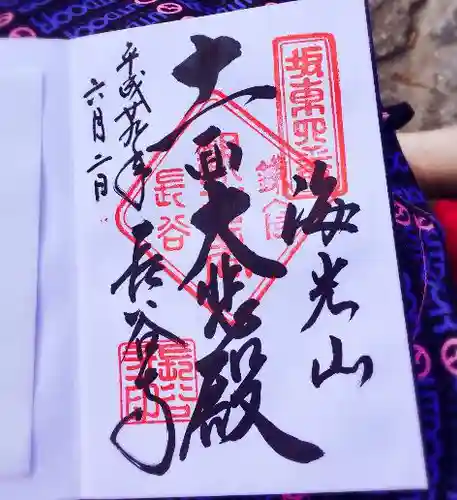 坂東四番
海光山
十一面大悲殿
鎌倉
長谷
長谷寺
平成廿九年
六月二日